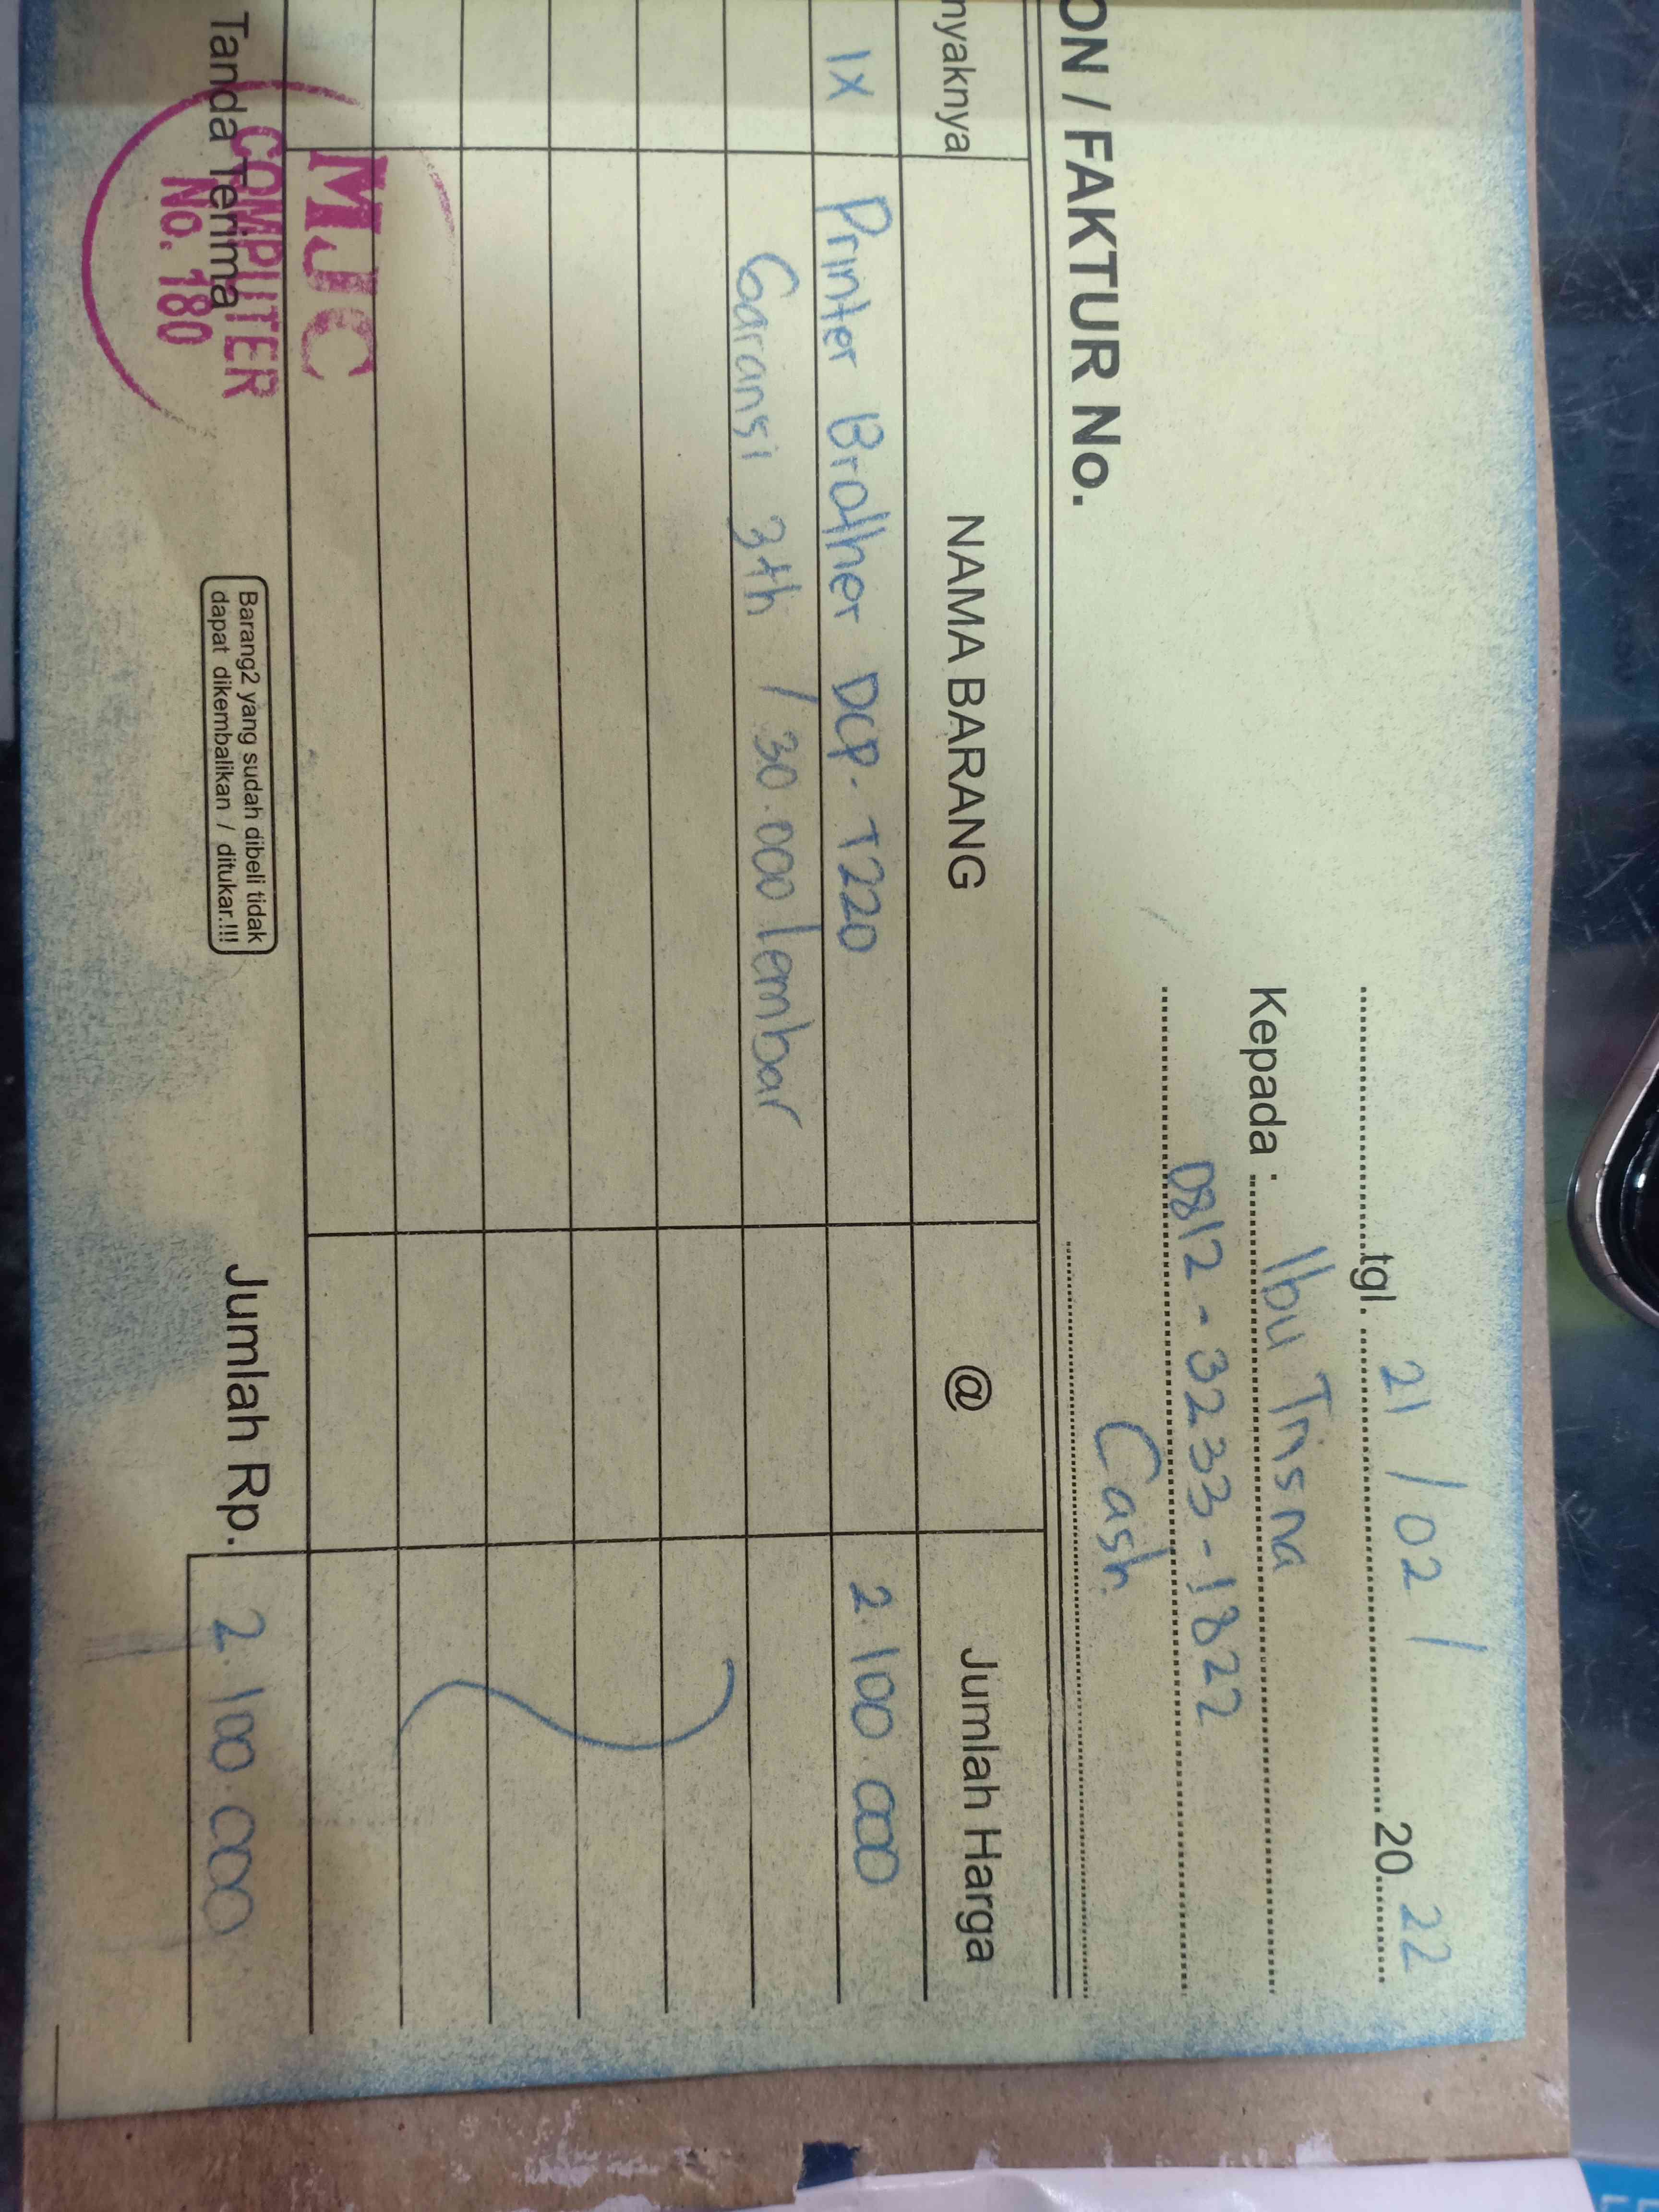 tgl. 21 / 02 / 2022
Kepada : Ibu Trisna
0812 - 3233 - 1822
Cash
ON / FAKTUR No.
nyaknya NAMA BARANG @ Jumlah Harga
1x Printer Brother DCP-T220 2.100.000
Garansi 3th / 30.000 lembar
MJC
COMPUTER
No. 180
Tanda Terima
Barang2 yang sudah dibeli tidak
dapat dikembalikan / ditukar.!!!
Jumlah Rp. 2.100.000